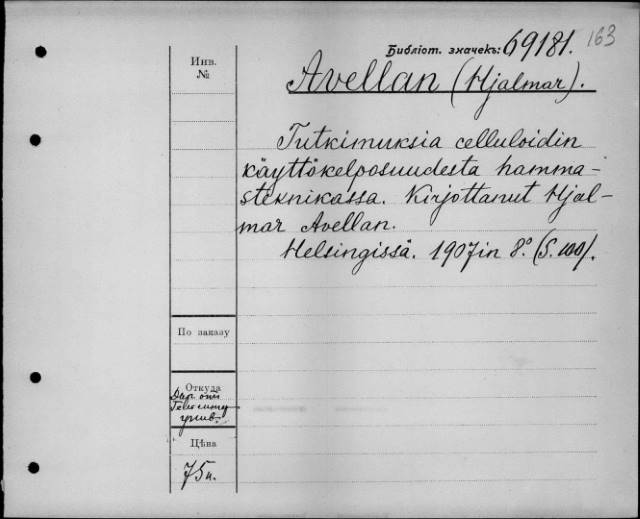 Библіот. значекъ: 69181. 163
Инв.
№
Avellan (Hjalmar).
Tutkimuksia celluloidin
käyttökelposuudesta hamma-
steknikassa. Kirjottanut Hjal-
mar Avellan.
Helsingissä. 1907 in 8° (S. 100).
По заказу
Откуда
Цѣна
75 к.